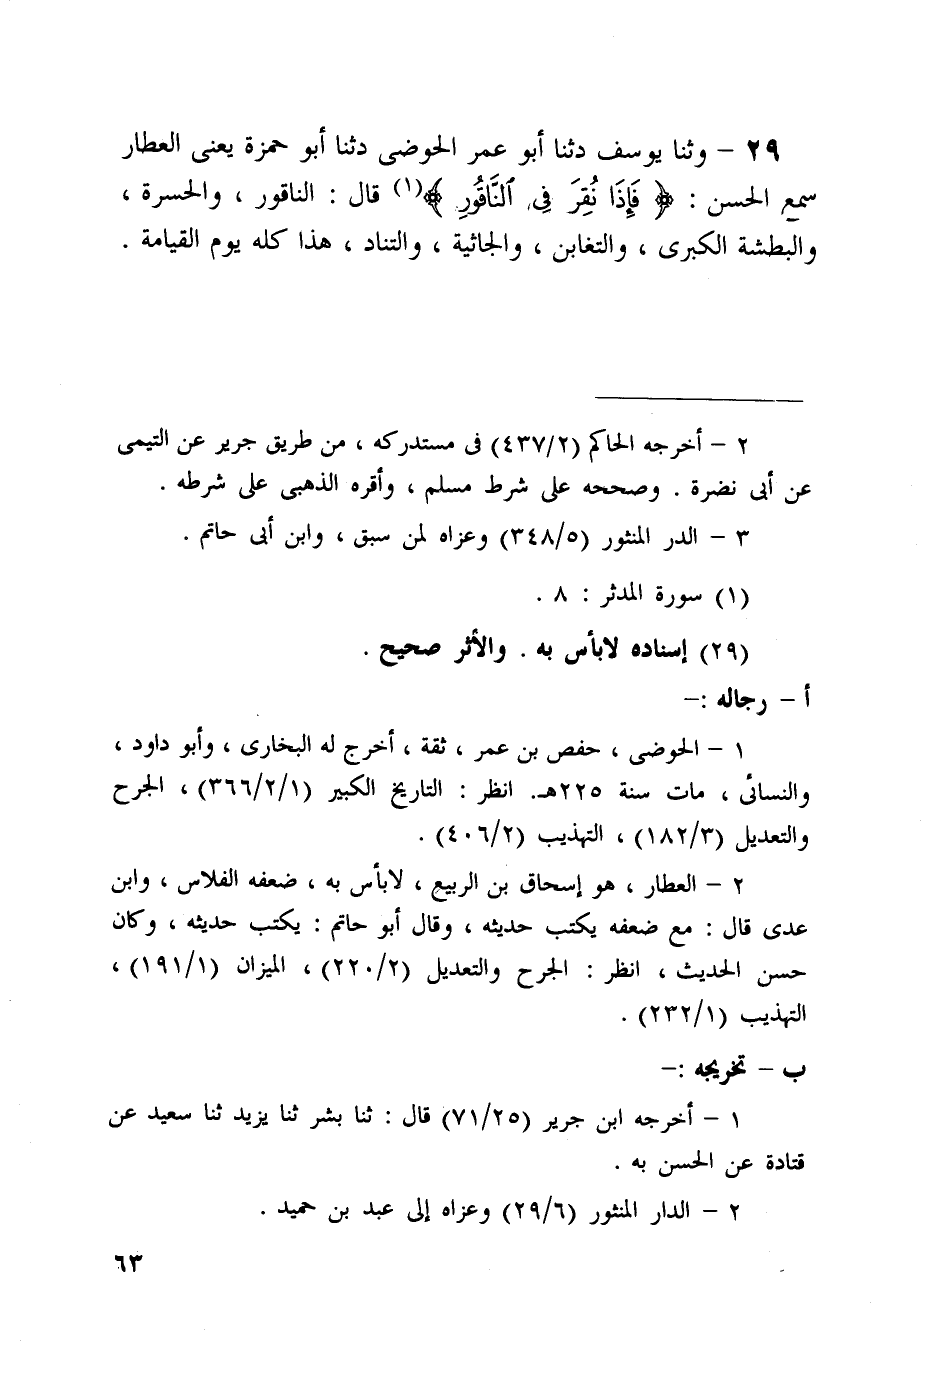 ٢٩ – وثنا يوسف دثنا أبو عمر الحوضى دثنا أبو حمزة يعنى العطار
سمع الحسن : ﴿ فَإِذَا نُقِرَ فِى ٱلنَّاقُورِ ﴾(١) قال : الناقور ، والحسرة ،
والبطشة الكبرى ، والتغابن ، والجاثية ، والتناد ، هذا كله يوم القيامة .
٢ – أخرجه الحاكم (٤٣٧/٢) فى مستدركه ، من طريق جرير عن التيمى
عن أبى نضرة . وصححه على شرط مسلم ، وأقره الذهبى على شرطه .
٣ – الدر المنثور (٣٤٨/٥) وعزاه لمن سبق ، وابن أبى حاتم .
(١) سورة المدثر : ٨ .
(٢٩) إسناده لابأس به . والأثر صحيح .
أ – رجاله :–
١ – الحوضى ، حفص بن عمر ، ثقة ، أخرج له البخارى ، وأبو داود ،
والنسائى ، مات سنة ٢٢٥هـ. انظر : التاريخ الكبير (٣٦٦/٢/١) ، الجرح
والتعديل (١٨٢/٣) ، التهذيب (٤٠٦/٢) .
٢ – العطار ، هو إسحاق بن الربيع ، لابأس به ، ضعفه الفلاس ، وابن
عدى قال : مع ضعفه يكتب حديثه ، وقال أبو حاتم : يكتب حديثه ، وكان
حسن الحديث ، انظر : الجرح والتعديل (٢٢٠/٢) ، الميزان (١٩١/١) ،
التهذيب (٢٣٢/١) .
ب – تخريجه :–
١ – أخرجه ابن جرير (٧١/٢٥) قال : ثنا بشر ثنا يزيد ثنا سعيد عن
قتادة عن الحسن به .
٢ – الدار المنثور (٢٩/٦) وعزاه إلى عبد بن حميد .
٦٣